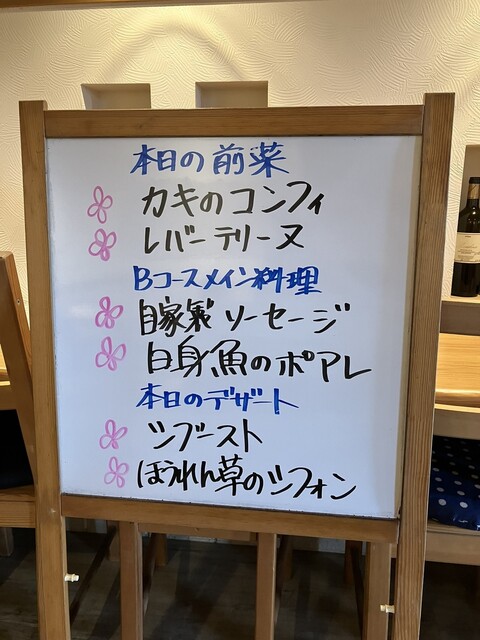 本日の前菜
カキのコンフィ
レバーテリーヌ
Bコースメイン料理
自家製ソーセージ
白身魚のポアレ
本日のデザート
シブースト
ほうれん草のシフォン